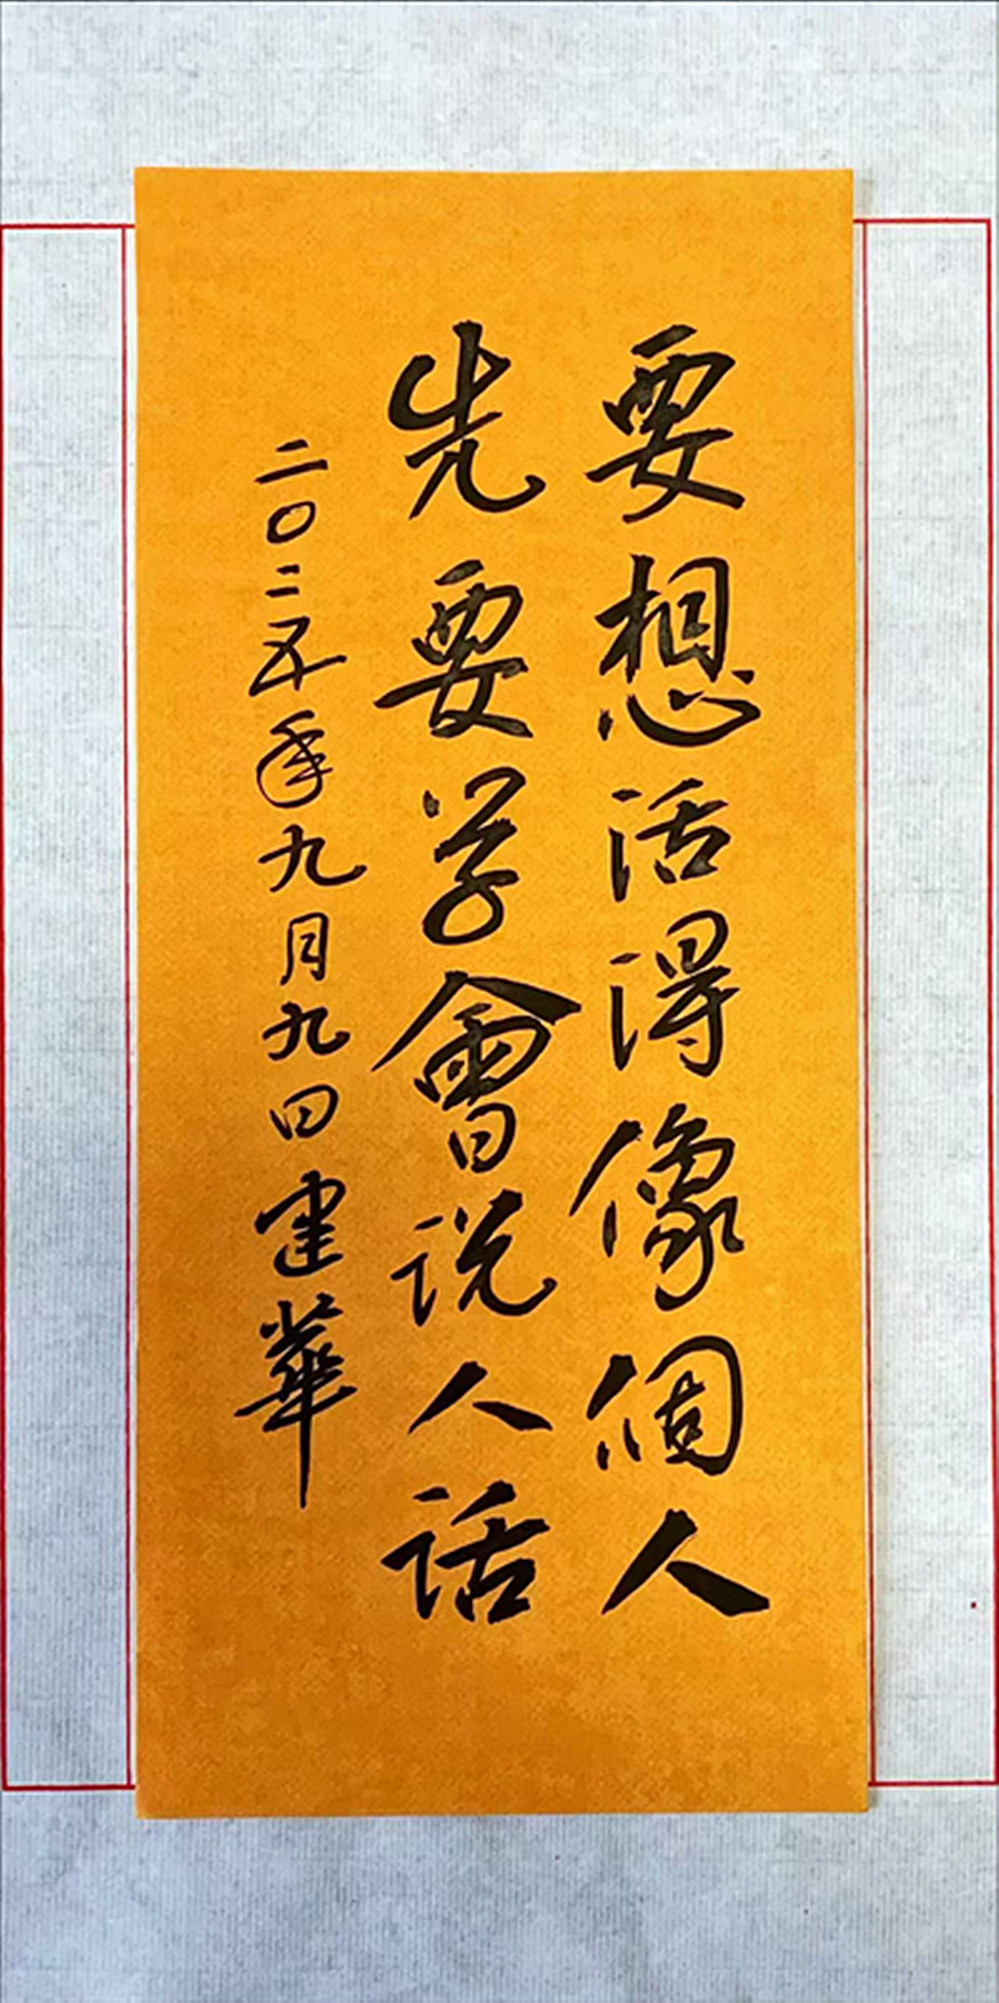 要想活得像個人
先要学會说人话
二〇二五年九月九日建華